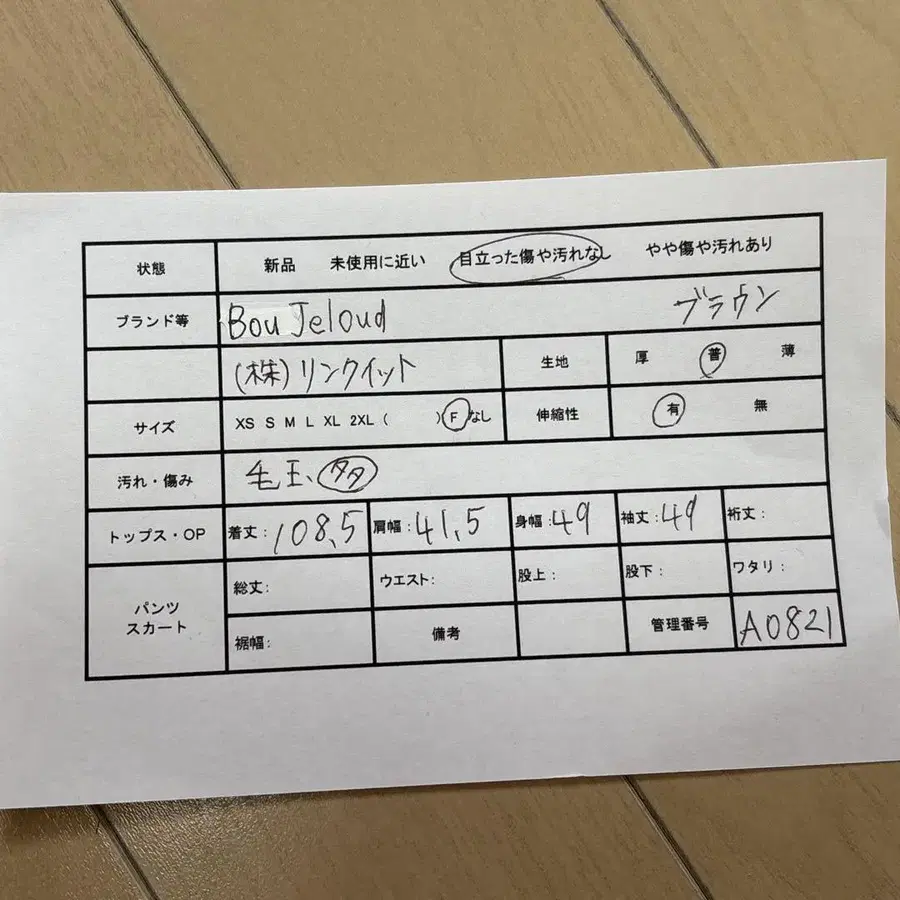 状態 新品 未使用に近い 目立った傷や汚れなし やや傷や汚れあり
ブランド等 Bou Jeloud ブラウン
(株)リンクイット 生地 厚 普 薄
サイズ XS S M L XL 2XL ( ) F なし 伸縮性 有 無
汚れ・傷み 毛玉、タタ
トップス・OP 着丈:108.5 肩幅:41.5 身幅:49 袖丈:49 裄丈:
パンツ スカート 総丈: ウエスト: 股上: 股下: ワタリ:
裾幅: 備考 管理番号 A0821